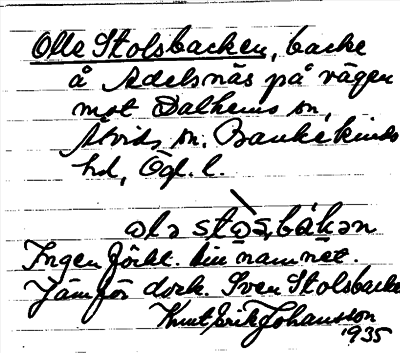 Olle Stolsbacken, backe
å Adelsnäs på vägen
mot Dalhems sn,
Åtvids sn. Bankekinds
hd, Ögl. l.
ɷlə stɷs,bákən
Ingen förkl. till namnet.
Jämför dock. Sven Stolsbacke
Knut Erik Johansson
1935